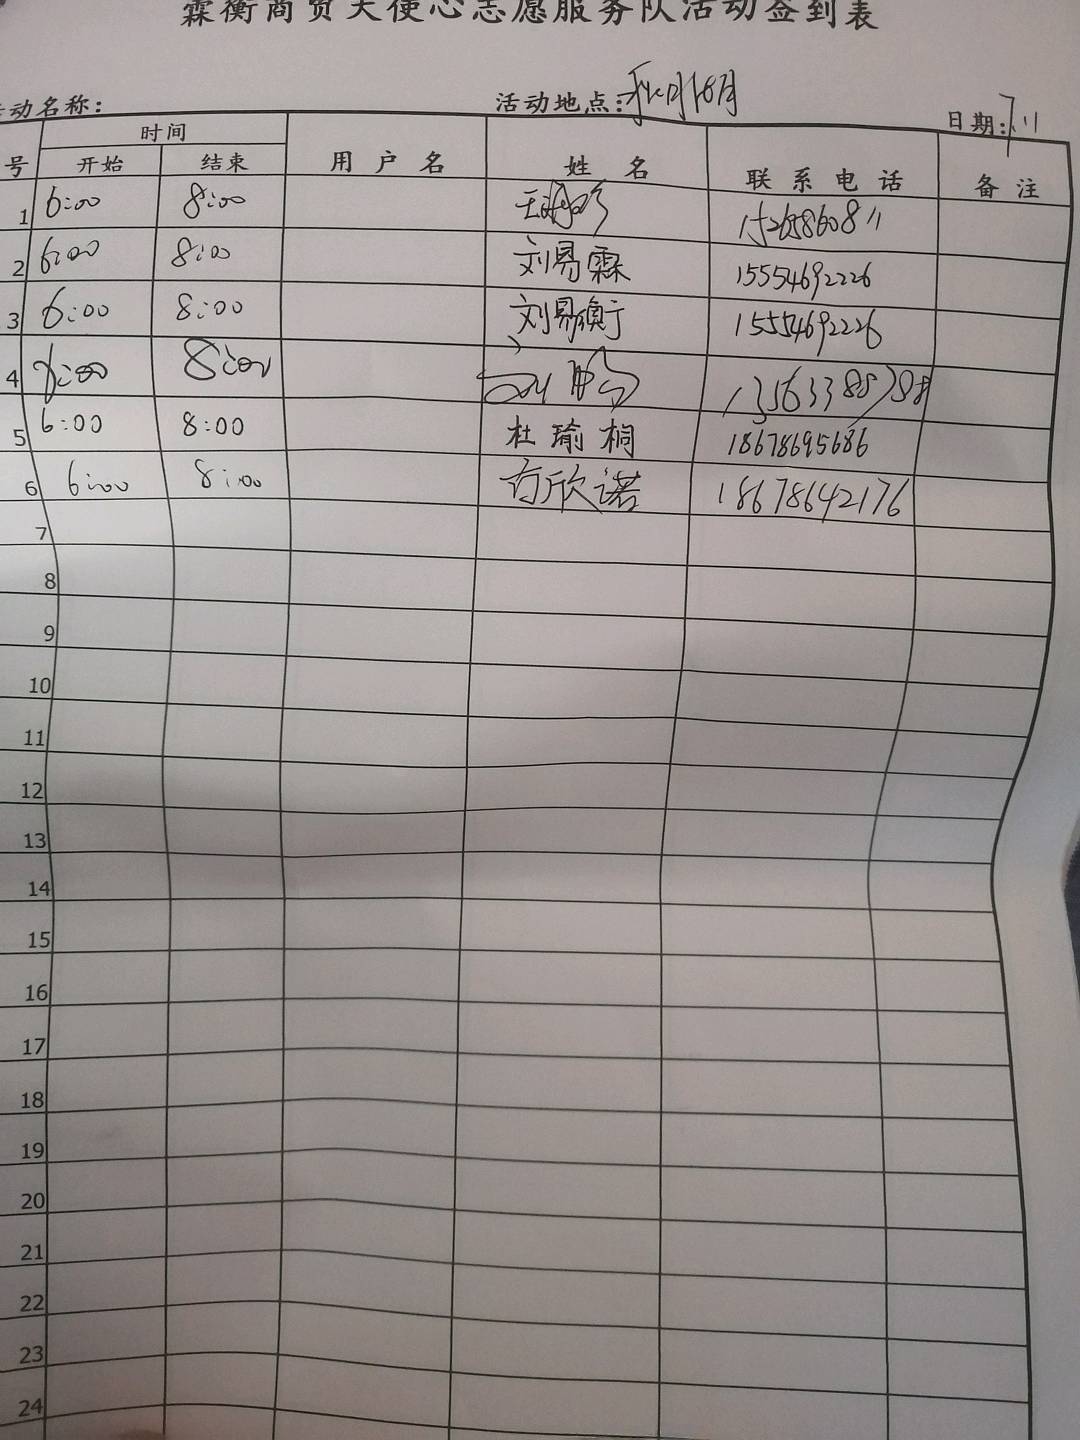 霖衡商贸天使心志愿服务队活动签到表
动名称： 活动地点： 日期：7.11
号 时间 用户名 姓名 联系电话 备注
开始 结束
1 6:00 8:00 15265860811
2 6:00 8:00 刘易霖 15554692226
3 6:00 8:00 刘易衡 15554692226
4 6:00 8:00
5 6:00 8:00 杜瑜桐 18678695686
6 6:00 8:00 欣诺 18678642176
7
8
9
10
11
12
13
14
15
16
17
18
19
20
21
22
23
24